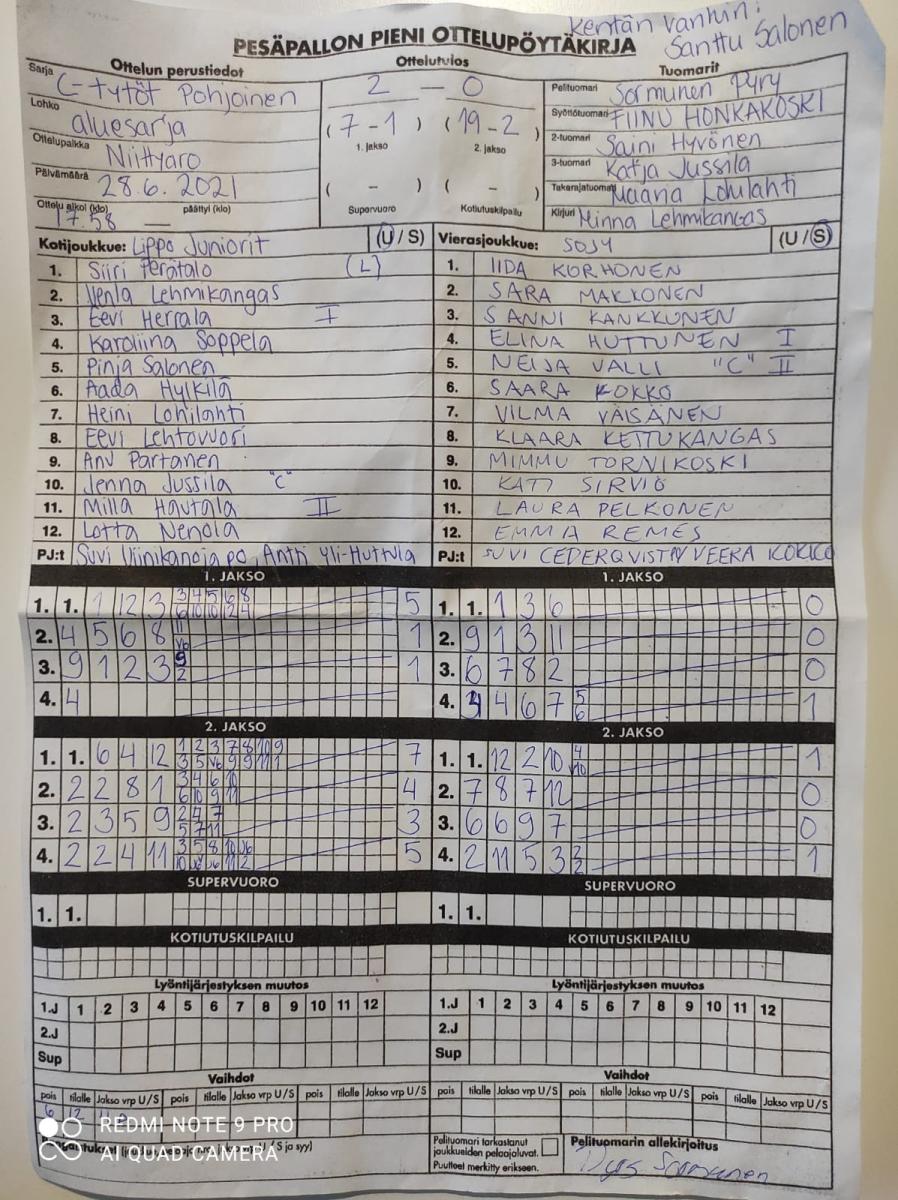 Kentän vanhin:
Santtu Salonen
PESÄPALLON PIENI OTTELUPÖYTÄKIRJA
Ottelun perustiedot
Sarja C-tytöt Pohjoinen
Lohko aluesarja
Ottelupaikka Niittyaro
Päivämäärä 28.6.2021
Ottelu alkoi (klo) 17.58 päättyi (klo) —
Ottelutulos
2 — 0
(7-1) (19-2)
1. jakso 2. jakso
( - ) ( - )
Supervuoro Kotiutuskilpailu
Tuomarit
Pelituomari Sormunen Pyry
Syöttötuomari TIINU HONKAKOSKI
2-tuomari Saini Hyvönen
3-tuomari Katja Jussila
Takarajatuomari Maaria Lohilahti
Kirjuri Minna Lehmikangas
Kotijoukkue: Lippo Juniorit (U / S)
1. Siiri Perätalo (L)
2. Venla Lehmikangas
3. Eevi Herrala I
4. Karoliina Soppela
5. Pinja Salonen
6. Aada Hylkilä
7. Heini Lohilahti
8. Eevi Lehtovuori
9. Anu Partanen
10. Jenna Jussila "C"
11. Milla Hautala II
12. Lotta Nenola
PJ:t Suvi Viinikanoja pc, Antti Yli-Huttula
Vierasjoukkue: SOJY (U / S)
1. IIDA KORHONEN
2. SARA MAKKONEN
3. SANNI KANKKUNEN
4. ELINA HUTTUNEN I
5. NEIJA VALLI "C" II
6. SAARA KOKKO
7. VILMA VÄISÄNEN
8. KLAARA KETTUKANGAS
9. MIMMU TORNIKOSKI
10. KATI SIRVIÖ
11. LAURA PELKONEN
12. EMMA REMES
PJ:t SUVI CEDERQVIST VEERA KOKKO
1. JAKSO
1. 1. 1 12 3 3 4 5 6 8 5
6 10 10 12 4
2. 4 5 6 8 11 1
V6
3. 9 1 2 3 9 1
2
4. 4
2. JAKSO
1. 1. 6 4 12 1 2 3 7 8 10 9 7
3 5 V6 9 9 11 1
2. 2 2 8 1 3 4 6 10 4
6 10 9 11
3. 2 3 5 9 2 4 7 3
5 7 11
4. 2 2 4 11 3 5 8 10 5
SUPERVUORO
1. 1.
KOTIUTUSKILPAILU
1. JAKSO
1. 1. 1 3 6 0
2. 9 1 3 11 0
3. 6 7 8 2 0
4. 4 6 7 5 1
6
2. JAKSO
1. 1. 12 2 10 4 1
V10
2. 7 8 7 12 0
3. 6 6 9 7 0
4. 2 11 5 3 2 1
2
SUPERVUORO
1. 1.
KOTIUTUSKILPAILU
Lyöntijärjestyksen muutos
1.J 1 2 3 4 5 6 7 8 9 10 11 12
2.J
Sup
Vaihdot
pois tilalle Jakso vrp U/S pois tilalle Jakso vrp U/S pois tilalle Jakso vrp U/S
6 12
Lyöntijärjestyksen muutos
1.J 1 2 3 4 5 6 7 8 9 10 11 12
2.J
Sup
Vaihdot
pois tilalle Jakso vrp U/S pois tilalle Jakso vrp U/S pois tilalle Jakso vrp U/S
Pelituomari tarkastanut
joukkueiden pelaajaluvat.
Puutteet merkitty erikseen.
Pelituomarin allekirjoitus
REDMI NOTE 9 PRO
AI QUAD CAMERA